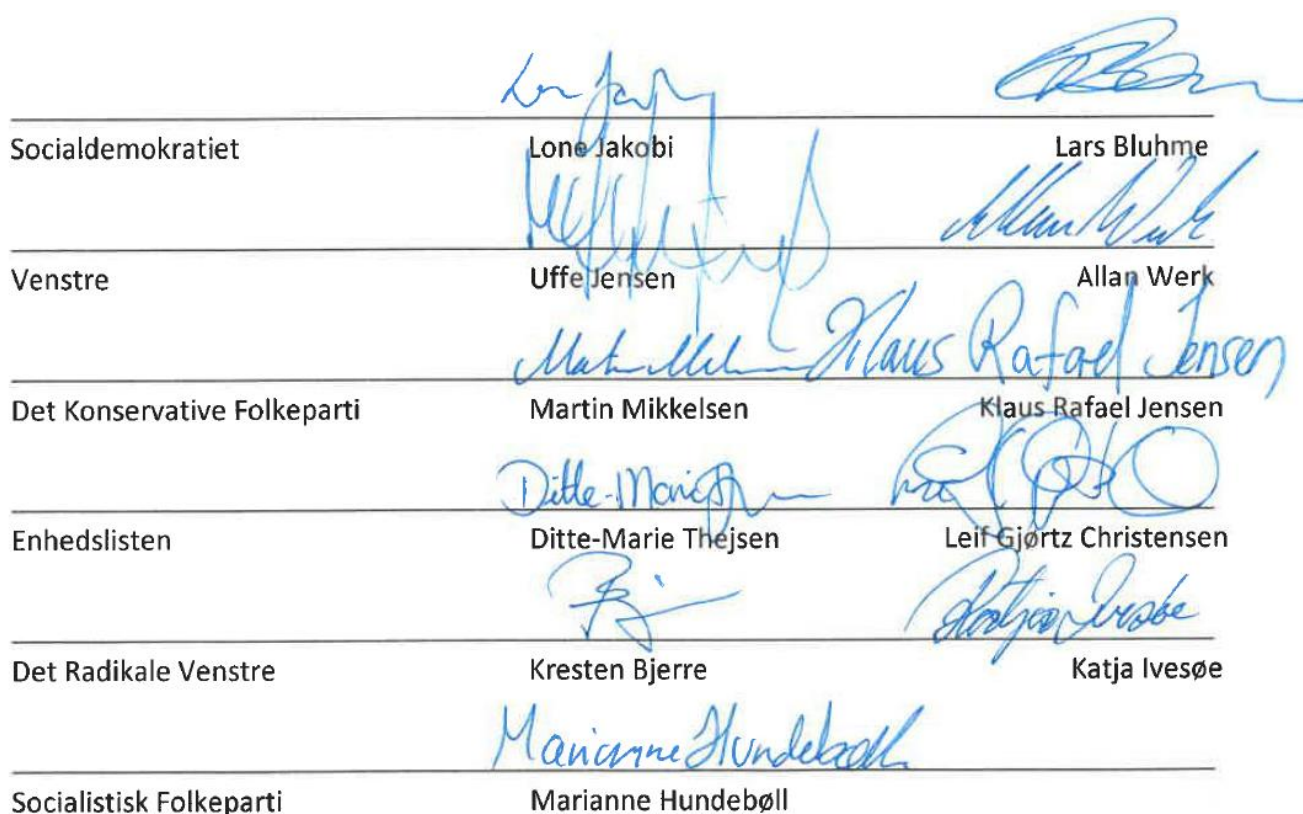 Socialdemokratiet Lone Jakobi Lars Bluhme
Allan Werk
Venstre Uffe Jensen Allan Werk
Klaus Rafael Jensen
Det Konservative Folkeparti Martin Mikkelsen Klaus Rafael Jensen
Ditte-Marie
Enhedslisten Ditte-Marie Thejsen Leif Gjørtz Christensen
Katja Ivesøe
Det Radikale Venstre Kresten Bjerre Katja Ivesøe
Marianne Hundebøll
Socialistisk Folkeparti Marianne Hundebøll